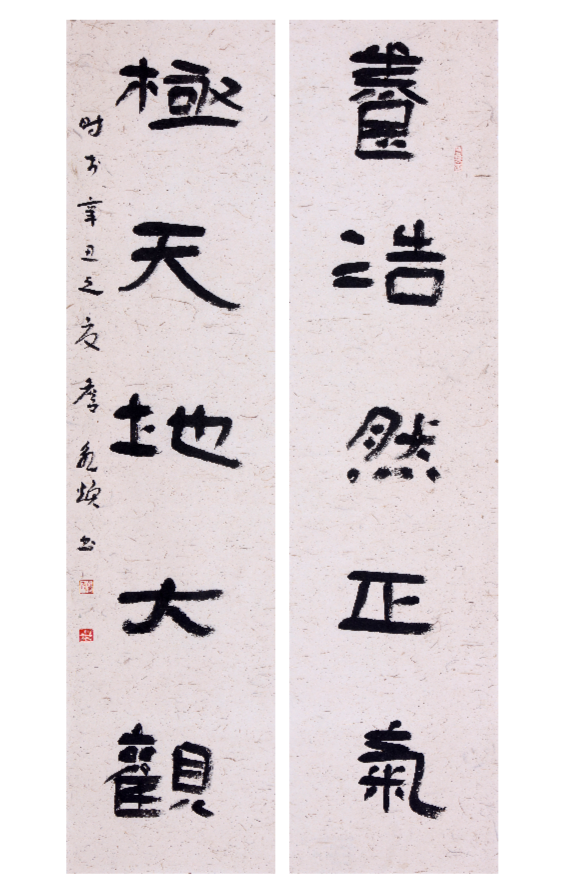 養浩然正氣
極天地大觀
時於辛丑之夏
書